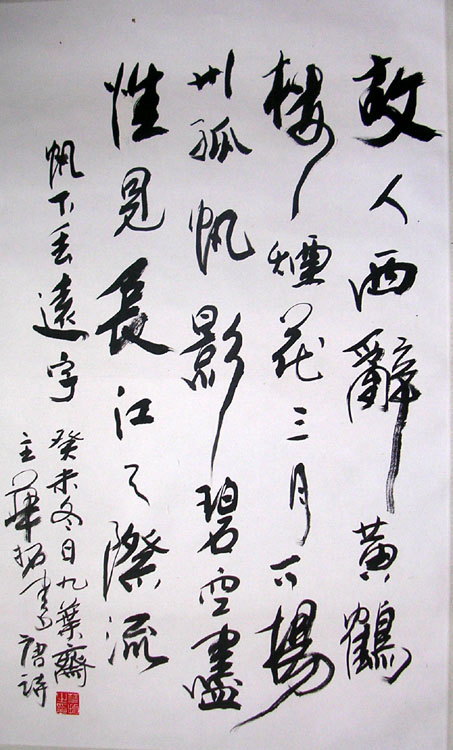 故人西辭黃鶴
樓煙花三月下揚
州孤帆影碧空盡
惟見長江天際流
帆下丢遠字
癸未冬日九葉齋
主華拓書唐詩